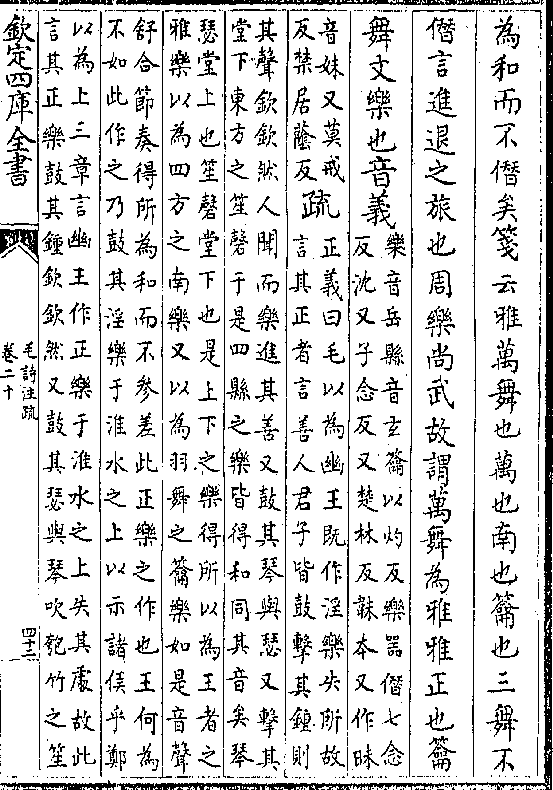 為和而不僭矣箋云雅萬舞也萬也南也籥也三舞不
僭言進退之旅也周樂尚武故謂萬舞為雅雅正也籥
舞文樂也音義
樂音岳縣音𤣥籥以灼反樂器僭七念
反沈又子念反又楚林反韎本又作昧
音妹又莫戒
反禁居蔭反
疏
正義曰毛以為幽王既作淫樂失所故
言其正者言善人君子皆鼓擊其鍾則
其聲欽欽然人聞而樂進其善又鼓其琴與瑟又擊其
堂下東方之笙磬于是四縣之樂皆得和同其音矣琴
瑟堂上也笙磬堂下也是上下之樂得所以為王者之
雅樂以為四方之南樂又以為羽舞之籥樂如是音聲
舒合節奏得所為和而不參差此正樂之作也王何為
不如此作之乃鼓其淫樂于淮水之上以示諸侯乎鄭
以為上三章言幽王作正樂于淮水之上失其處故此
言其正樂鼓其鍾欽欽然又鼓其瑟與琴吹匏竹之笙
欽定四庫全書
毛詩注疏
卷二十
四十三